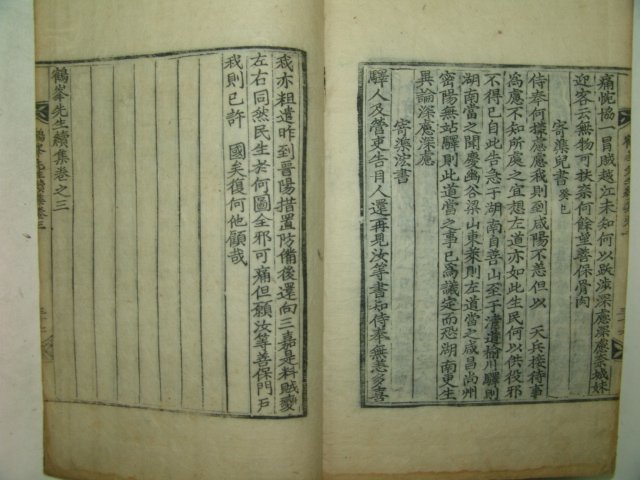 痛悅協一冒賊越江未知何以跋涉深慮深慮晉城妹
迎客云無物可扶奈何餘望善保骨肉
寄渫兒書 癸巳
侍奉何據慮慮我則到咸陽不恙但以 天兵接待事
爲慮不知所處之宜想左道亦如此生民何以供役邪
不得已自此告急于湖南自善山至于清道榆川驛則
湖南當之聞慶幽谷梁山東萊則左道當之咸昌尚州
密陽無站驛則此道當之事已爲議定而恐湖南更生
異論深慮深慮
寄渫浤書
驛人及營吏告目人還再見汝等書知侍奉無恙多喜
我亦粗遣昨到晉陽措置防備後還向三嘉是料賊變
左右同然民生於何圖全邪可痛但願汝等善保門戶
我則已許 國矣復何他顧哉
鶴峯先生續集卷之三
鶴峯先生續集卷三